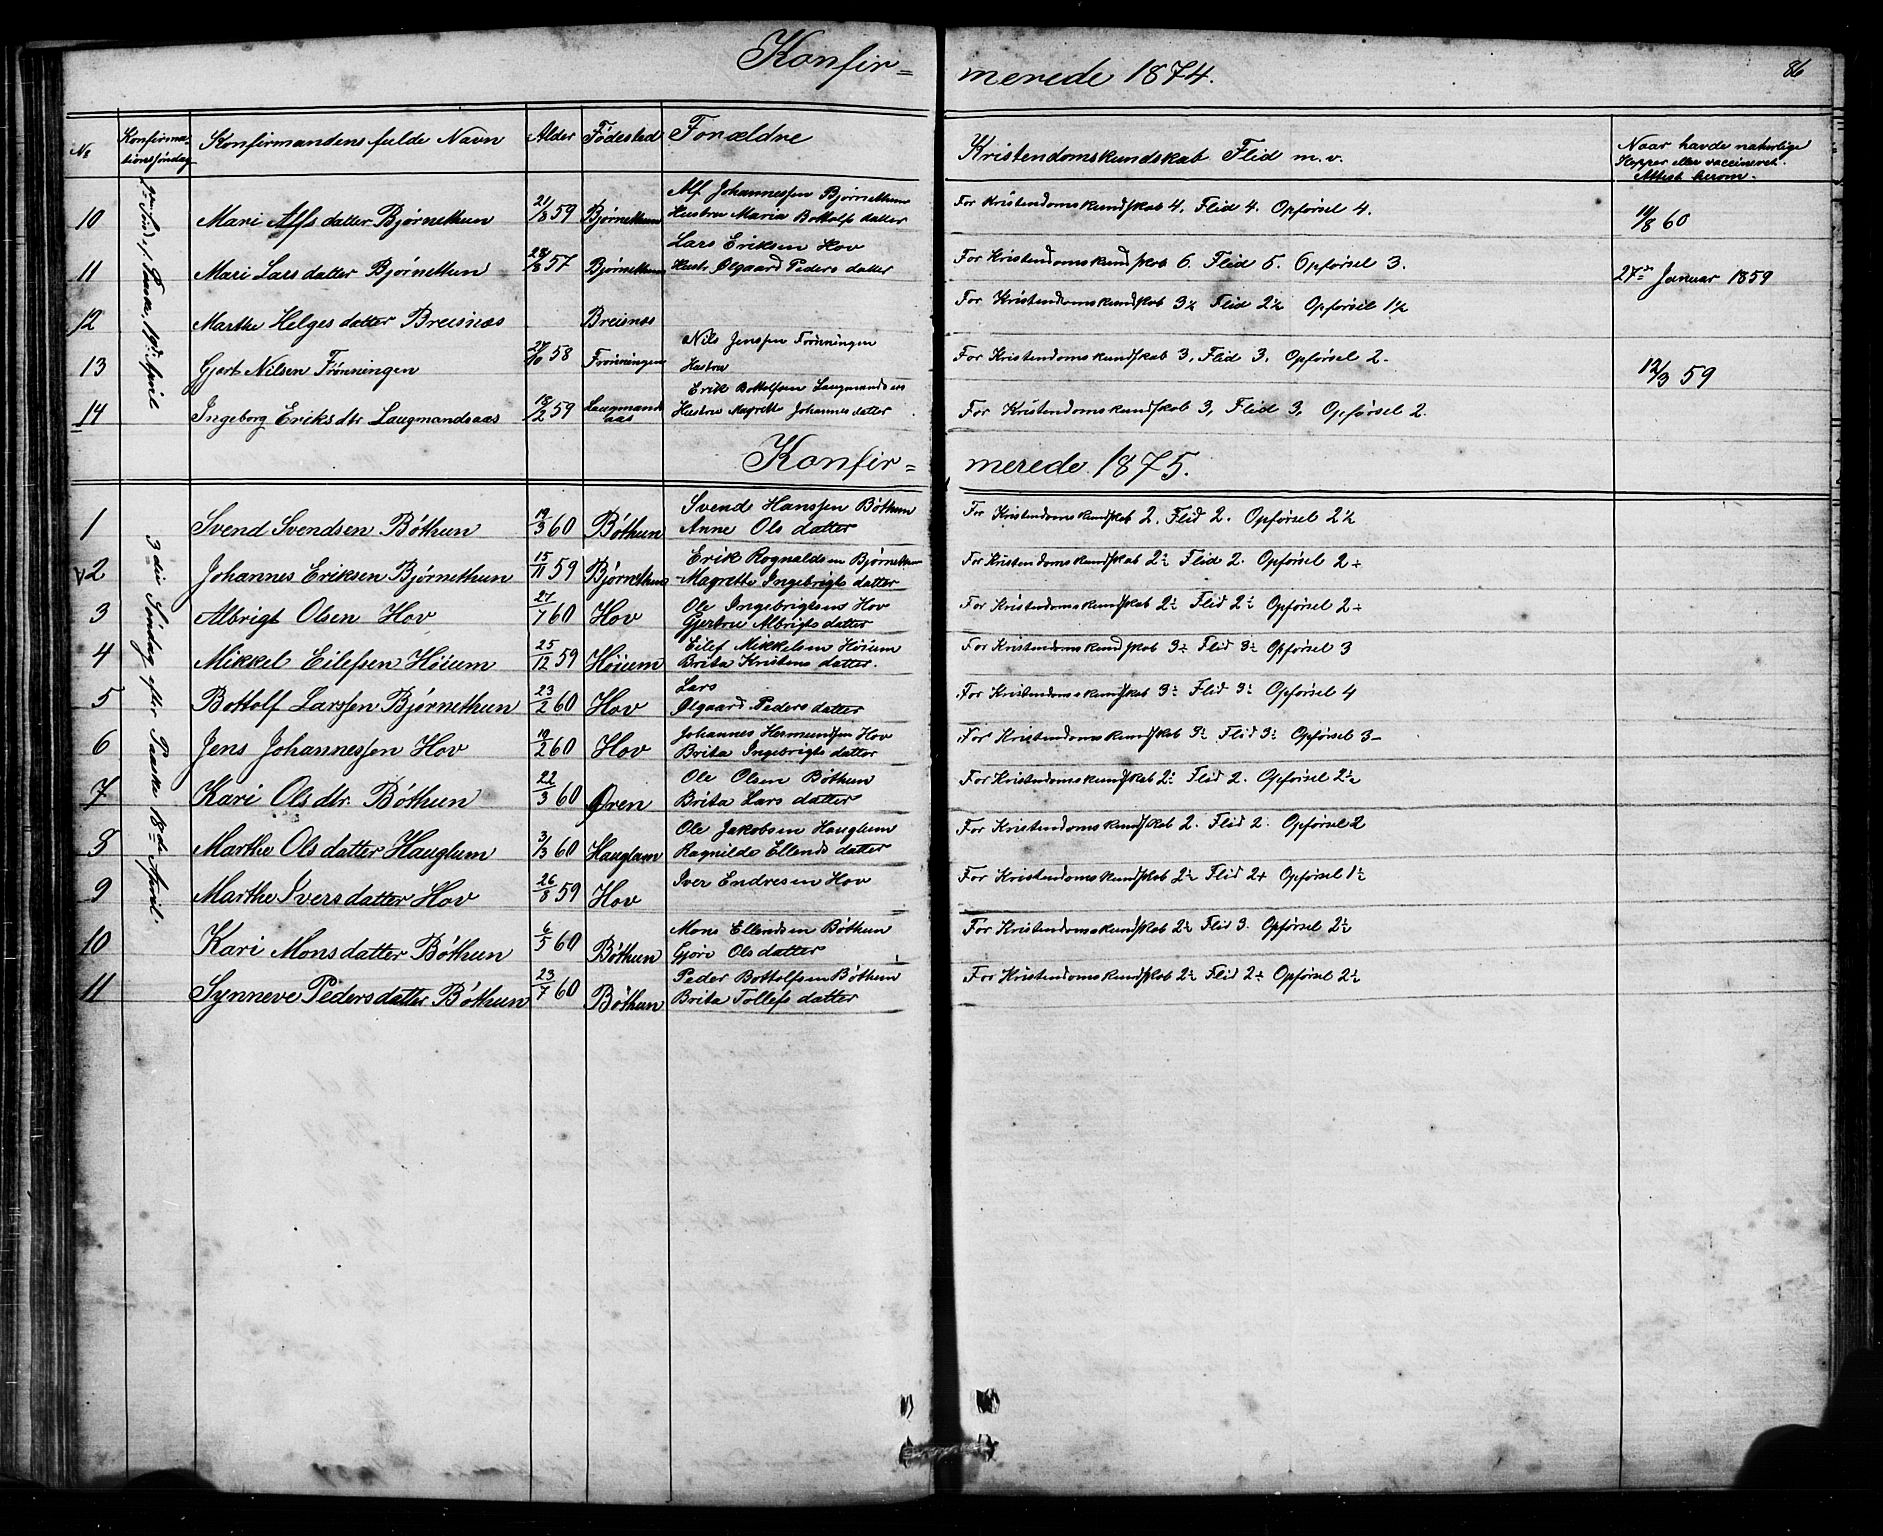 Konfir=
merede 1874.
86
No
Konfirma-
tionssøndag
Konfirmandens fulde Navn
Alder
Fødested
Forældre
Kristendomskundskab Flid m. v.
Naar havde naturlige
Kopper eller vaccineret.
Attest herom.
2den Sønd. e. Paaske, 19de April
10 Mari Alfsdatter Bjørnethun 21/3 59 Bjørnethun
Alf Johannessen Bjørnethun
Hustru Maria Bottolfsdatter
For Kristendomskundskab 4. Flid 4. Opførsel 4.
11/8 60
11 Mari Larsdatter Bjørnethun 28/8 57 Bjørnethun
Lars Eriksen Hov
Hustr. Ølgaard Pedersdatter
For Kristendomskundskab 6. Flid 5. Opførsel 3.
27de Januar 1859
12 Marthe Helgesdatter Breisnæs Breisnæs
For Kristendomskundskab 3½ Flid 2½ Opførsel 1½
13 Gjert Nilsen Frønningen 58 Frønningen
Nils Jenssen Frønningen
Hustru
For Kristendomskundskab 3, Flid 3, Opførsel 2.
12/3 59
14 Ingeborg Eriksdtr Laugmandsaas 18/2 59 Laugmands
aas
Erik Bottolfsen Laugmandsaas
Hustru Magrette Johannesdatter
For Kristendomskundskab 3, Flid 3, Opførsel 2.
Konfir=
merede 1875.
3die Søndag efter Paaske 18de April
1 Svend Svendsen Bøthun 19/3 60 Bøthun
Svend Hanssen Bøthun
Anne Olsdatter
For Kristendomskundskab 2. Flid 2. Opførsel 2½
v2 Johannes Eriksen Bjørnethun 15/11 59 Bjørnethun
Erik Rognaldsen Bjørnethun
Magrette Ingebrigtsdatter
For Kristendomskundskab 2½ Flid 2. Opførsel 2+
3 Albrigt Olsen Hov 27/1 60 Hov
Ole Ingebrigtsens Hov
Gjertrue Albrigtsdatter
For Kristendomskundskab 2½ Flid 2½ Opførsel 2+
4 Mikkel Eilefsen Høium 25/12 59 Høium
Eilef Mikkelsen Høium
Brita Kristensdatter.
For Kristendomskundskab 3½ Flid 3½ Opførsel 3
5 Bottolf Larssen Bjørnethun 23/2 60 Hov
Lars
Ølgaard Pedersdatter
For Kristendomskundskab 3½ Flid 3½ Opførsel 4
6 Jens Johannessen Hov 19/2 60 Hov
Johannes Hermundsen Hov
Brita Ingebrigtsdatter
For Kristendomskundskab 3½ Flid 3½ Opførsel 3-
7 Kari Olsdtr. Bøthun 22/3 60 Øren
Ole Olsen Bøthun
Brita Larsdatter
For Kristendomskundskab 2½ Flid 2. Opførsel 2½
8 Marthe Olsdatter Hauglum 3/3 60 Hauglum
Ole Jakobsen Hauglum
Ragnilde Ellendsdatter
For Kristendomskundskab 2. Flid 2. Opførsel 2
9 Marthe Iversdatter Hov 26/8 59 Hov
Iver Endresen Hov
For Kristendomskundskab 2½ Flid 2+ Opførsel 1½
10 Kari Monsdatter Bøthun 6/5 60 Bøthun
Mons Ellendsen Bøthun
Gjøri Olsdatter
For Kristendomskundskab 2½ Flid 3. Opførsel 2½
11 Synneve Pedersdatter Bøthun 23/7 60 Bøthun
Peder Bottolfsen Bøthun
Brita Tollefsdatter
For Kristendomskundskab 2½ Flid 2+ Opførsel 2½